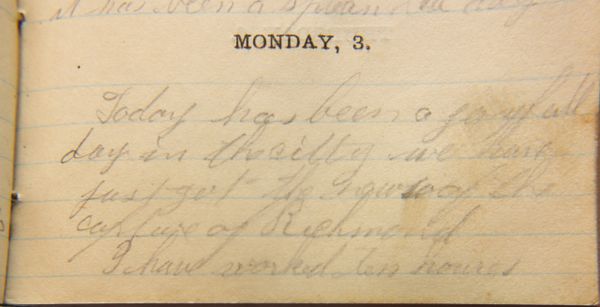 it has been a splended day
MONDAY, 3.
Today has been a joyfull
day in the citty we have
just got the news of the
capture of Richmond
I have worked ten houres